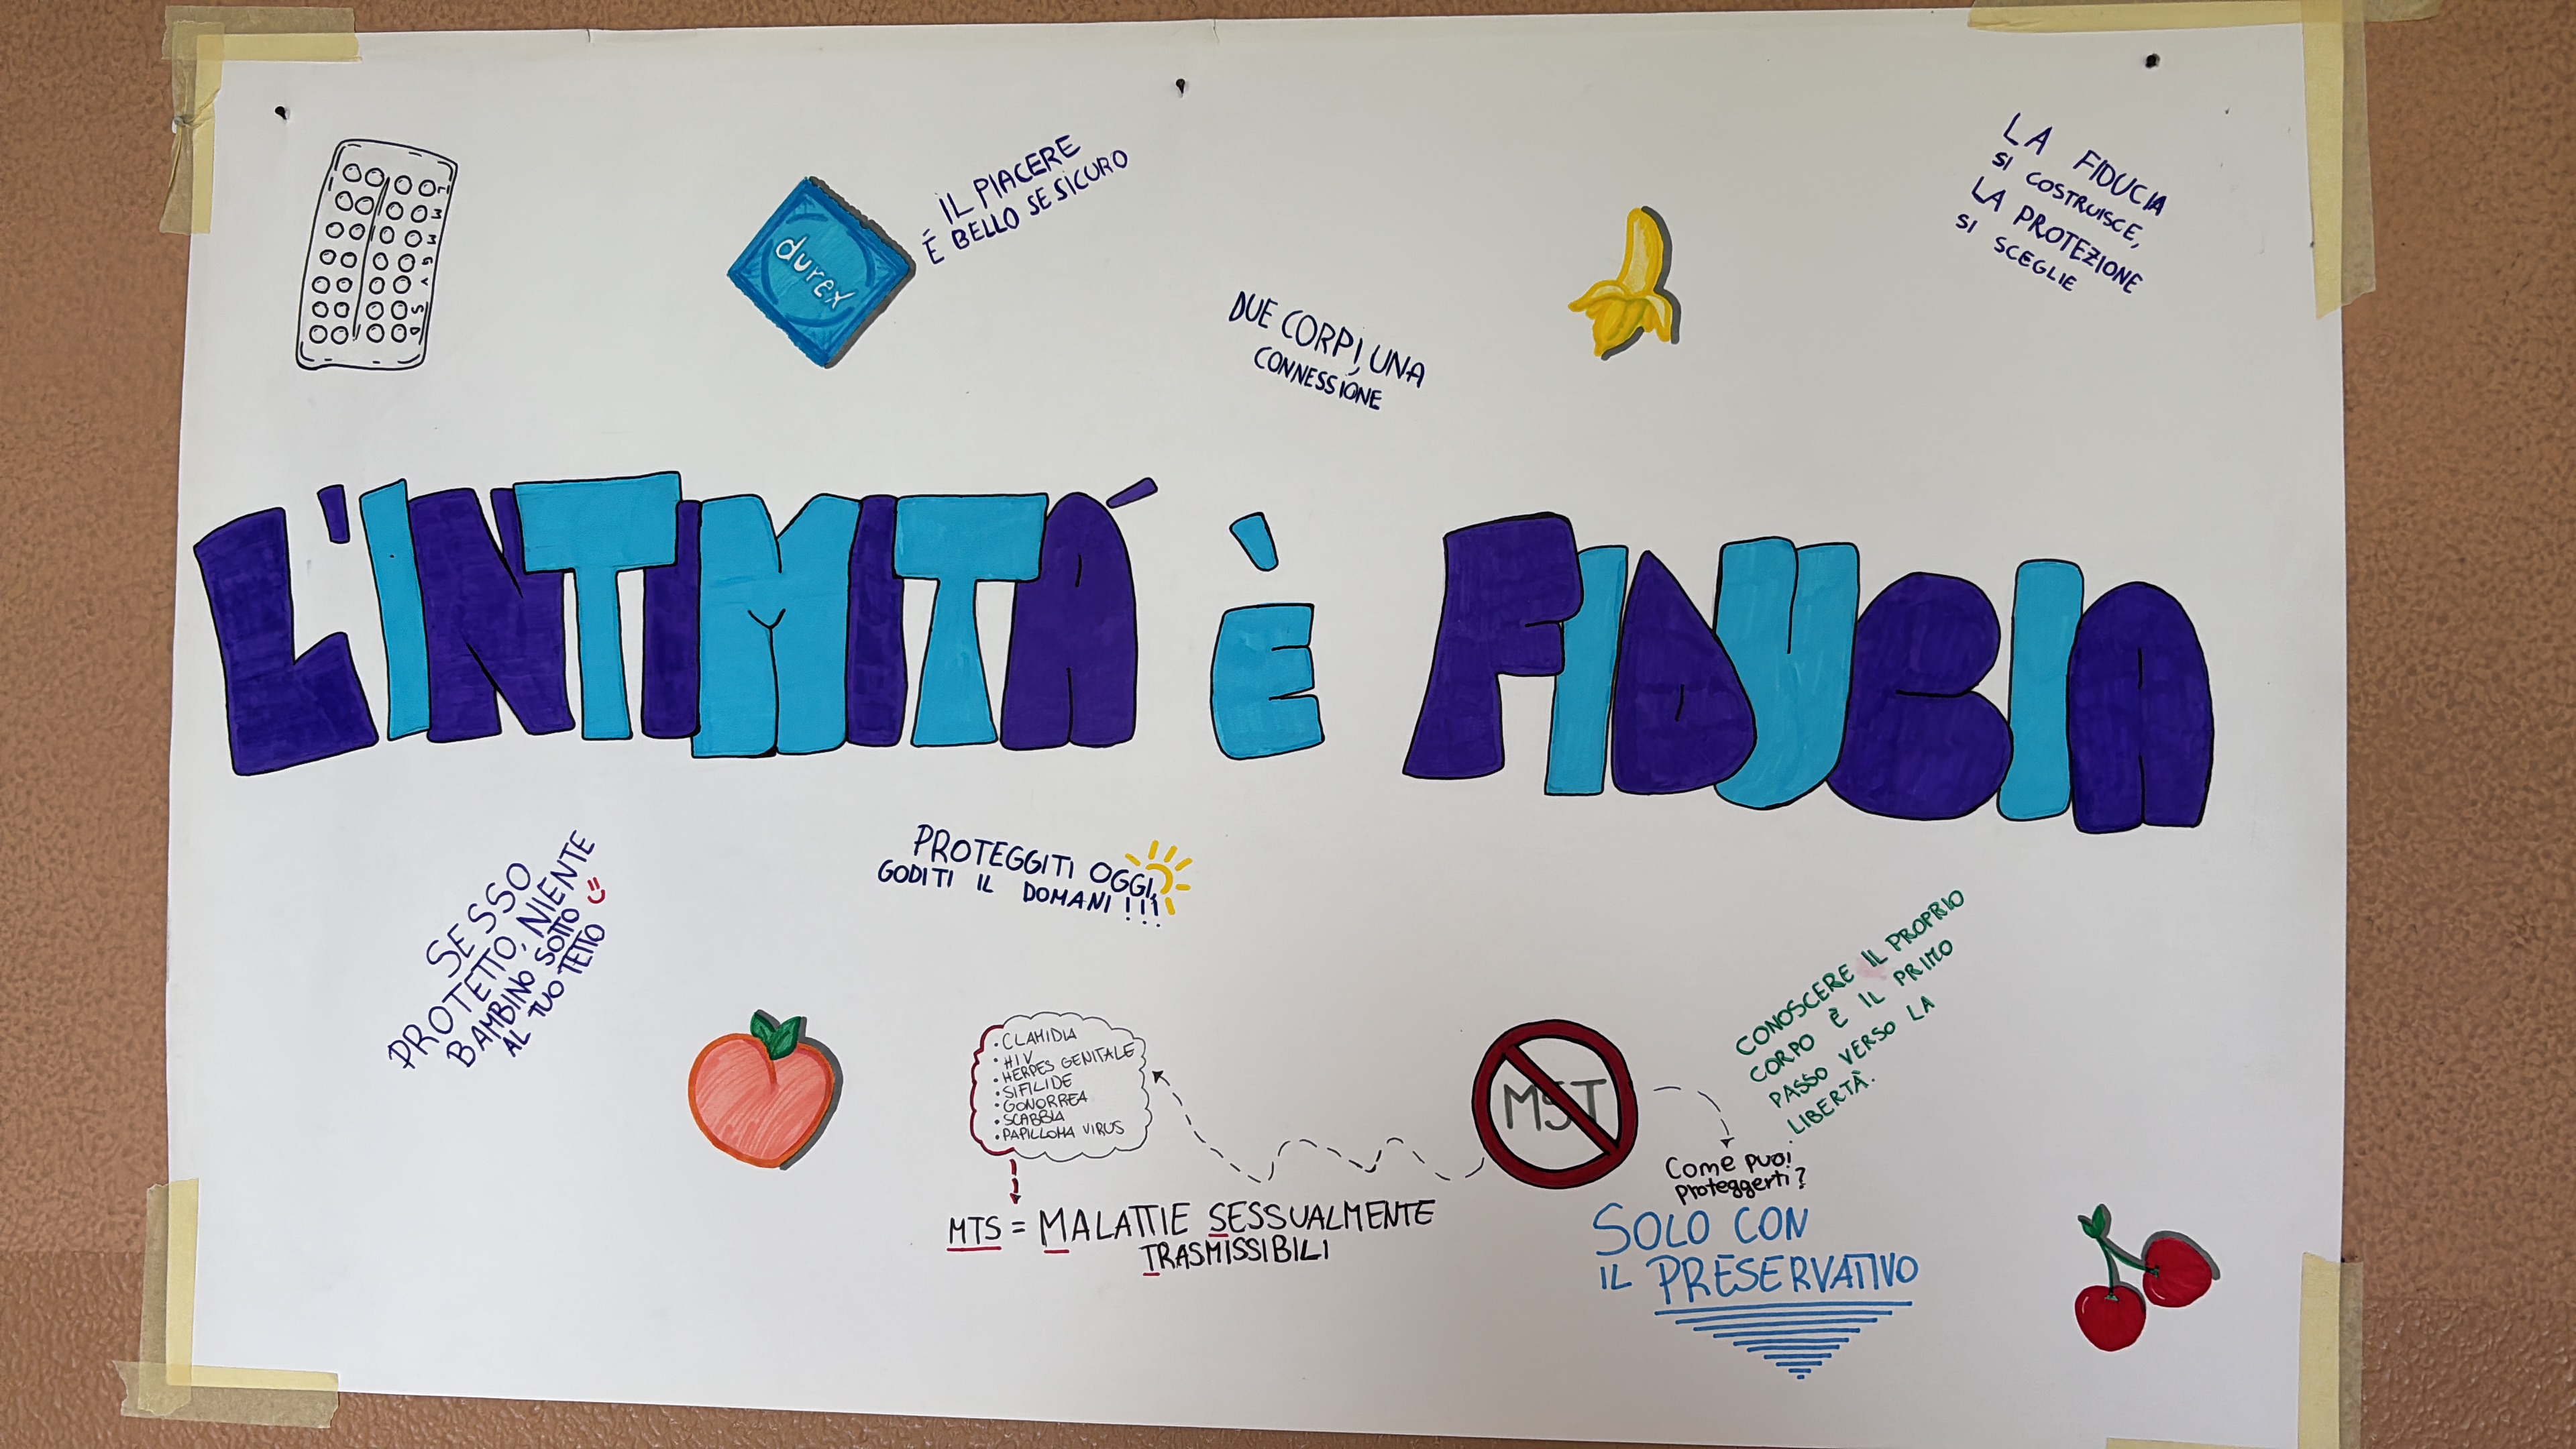 L
M
M
G
V
S
D
durex
IL PIACERE
É BELLO SE SICURO
DUE CORPI, UNA
CONNESSIONE
LA FIDUCIA
SI COSTRUISCE,
LA PROTEZIONE
SI SCEGLIE
L'INTIMITÁ È FIDUCIA
SESSO
PROTETTO, NIENTE
BAMBINO SOTTO
AL TUO TETTO
PROTEGGITI OGGI,
GODITI IL DOMANI!!!
CONOSCERE IL PROPRIO
CORPO È IL PRIMO
PASSO VERSO LA
LIBERTÀ.
• CLAMIDIA
• HIV
• HERPES GENITALE
• SIFILIDE
• GONORREA
• SCABBIA
• PAPILLOMA VIRUS
MTS = MALATTIE SESSUALMENTE
TRASMISSIBILI
MST
Come puoi
proteggerti?
SOLO CON
IL PRESERVATIVO